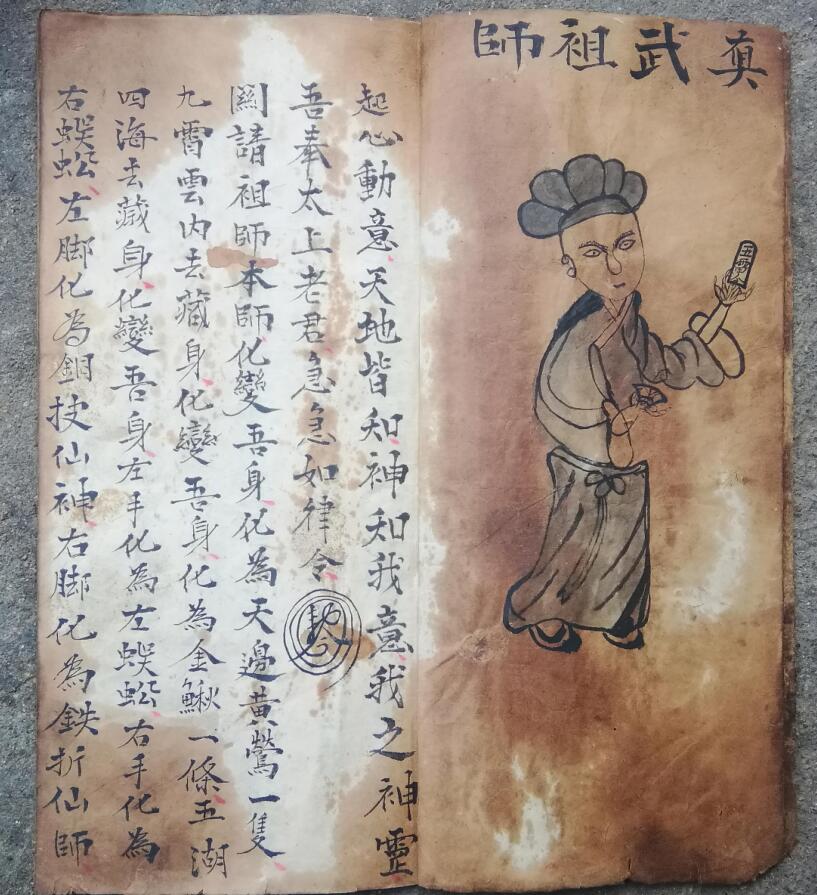 真武祖師
起心動意天地皆知神知我意我之神靈
吾奉太上老君急急如律令
請祖師本師化變吾身化為天邊黃鶯一隻
九霄雲內去藏身化變吾身化為金鰍一條五湖
四海去藏身化變吾身左手化為左蜈蚣右手化為
右蜈蚣左脚化為銅扠仙神右脚化為鉄折仙師